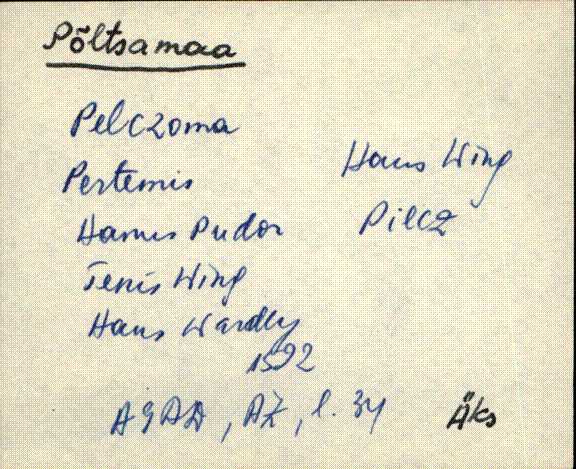 Põltsamaa
Pelczoma
Pertemis
Hannus Pudor
Tenis Wing
Hans Wardly
1592
Hans Wing
Pilcz
AGAD, AZ, l. 34
Äks